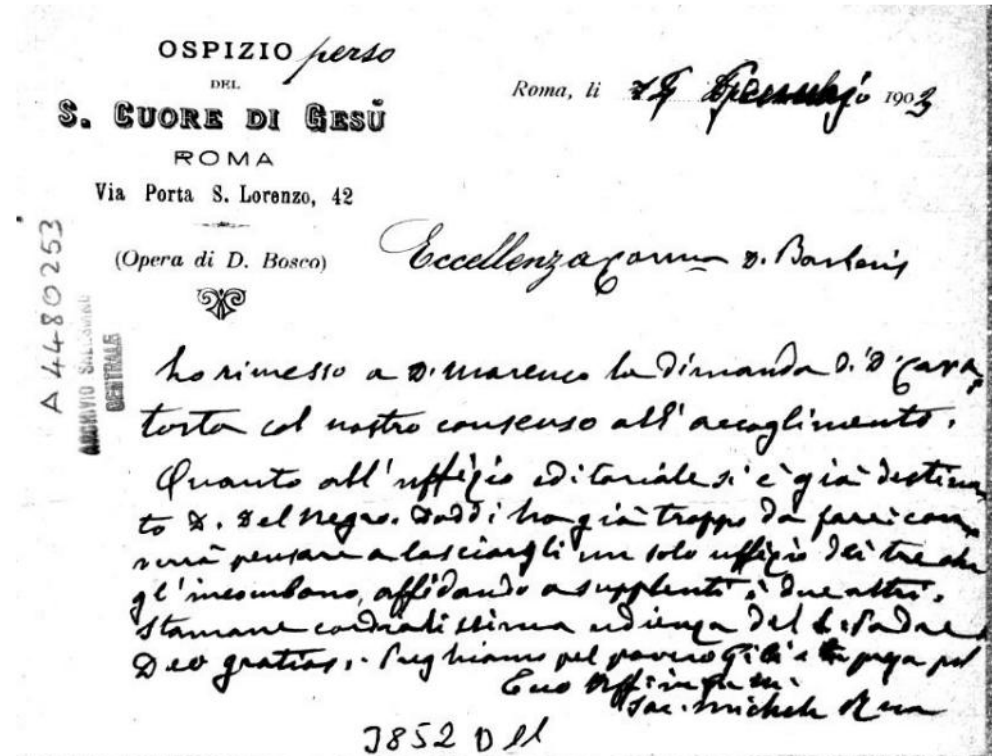 OSPIZIO perso
DEL
S. CUORE DI GESÙ
ROMA
Via Porta S. Lorenzo, 42
(Opera di D. Bosco)
Roma, li 1903
Eccellenza D. Barberis
ho rimesso a D. Marenco la dimanda di D. Cava
torta col nostro consenso all' accoglimento.
Quanto all' uffizio editoriale si è già destina
to D. Del Negro. Daddi ha già troppo da fare; con
verrà pensare a lasciargli un solo uffizio dei tre che
gl' incombono, affidando a supplenti i due altri.
Stamane cordialissima udienza del S. Padre
Deo gratias. Preghiamo pel povero e prega pel
Sac. Michele Rua
A 4480253
ARCHIVIO SALESIANO
CENTRALE
3852 D 11